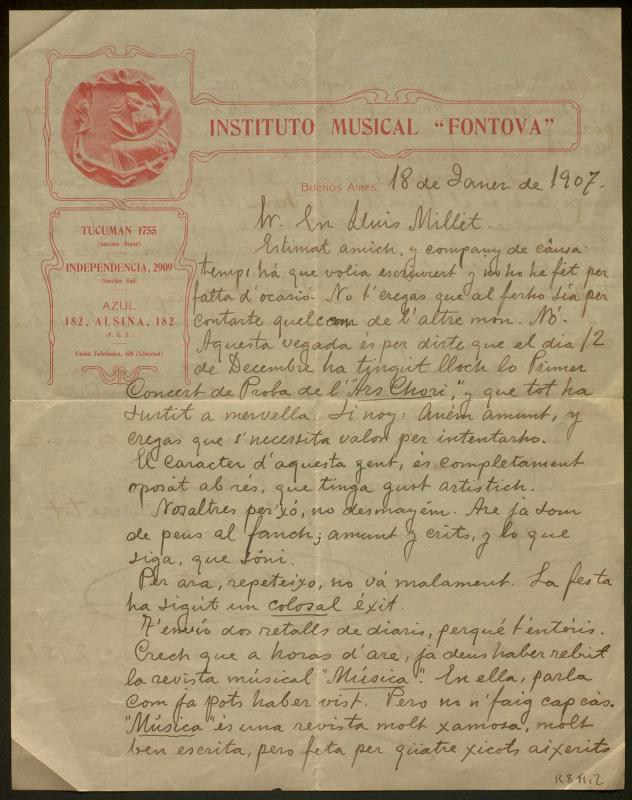 INSTITUTO MUSICAL "FONTOVA"
BUENOS AIRES, 18 de Janer de 1907.
TUCUMAN 1755
(Sección Norte)
INDEPENDENCIA, 2909
(Sección Sud)
AZUL
182, ALSINA, 182
(F. C. S.)
Unión Telefónica, 428 (Libertad)
En Lluis Millet.
Estimat amich, y company de causa
temps há que volia escriuret y no ho he fet per
falta d'ocasió. No t'cregas que al ferho sía per
contarte quelcom de l'altre mon. Nó.
Aquesta vegada es per dirte que el dia 12
de Decembre ha tingut lloch lo Primer
Concert de Proba de l'"Ars Chori," y que tot ha
surtit a mervella. Si noy: Aném amunt, y
cregas que s'necessita valor per intentarho.
El caracter d'aquesta gent, és completament
oposat ab rés, que tinga gust artistich.
Nosaltres per'xó, no desmayém. Are ja som
de peus al fanch; amunt y crits, y lo que
siga, que sóni.
Per ara, repeteixo, no vá malament. La festa
ha sigut un colosal éxit.
T'envío dos retalls de diaris, perqué t'entéris.
Crech que a horas d'are, ja deus haber rebut
la revista músical "Música". En ella, parla
com ja pots haber vist. Pero no n'faig cap cás.
"Música" és una revista molt xamosa, molt
ben escrita, pero feta per quatre xicots aixerits